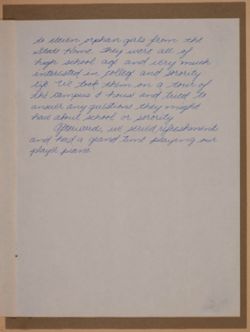 to eleven orphan girls from the
State Home. They were all of
high school age and very much
interested in college and sorority
life. We took them on a tour of
the campus & house and tried to
answer any questions they might
had about school or sorority.
Afterwards, we served refreshments
and had a grand time playing our
player piano.